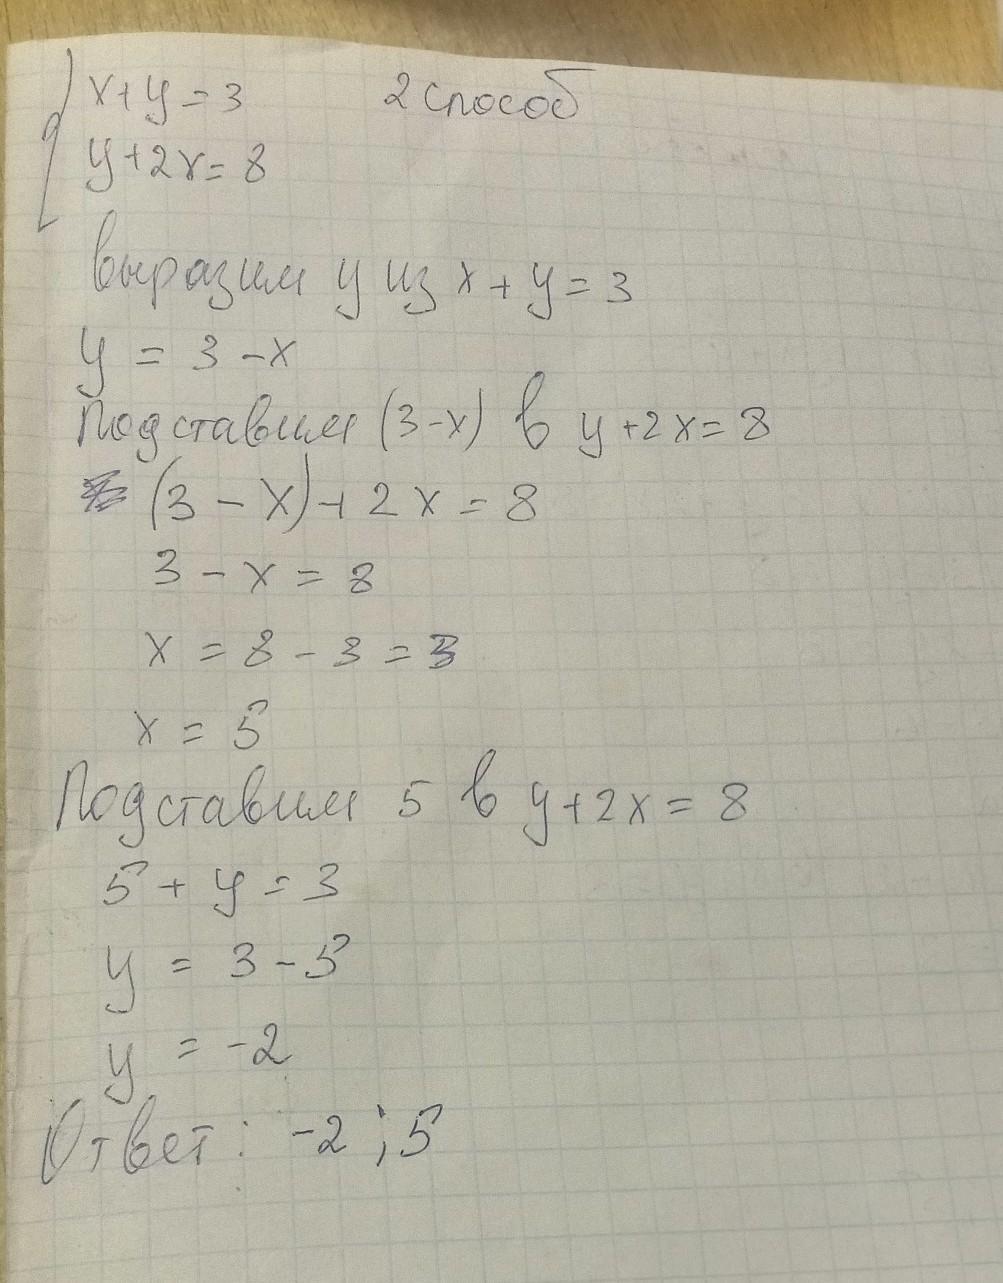 x+y=3 2 способ
y+2x=8
выразим y из x+y=3
y = 3-x
Подставим (3-x) в y+2x=8
(3-x)+2x=8
3-x=8
x=8-3=3
x=5
Подставим 5 в y+2x=8
5+y=3
y=3-5
y=-2
Ответ: -2;5